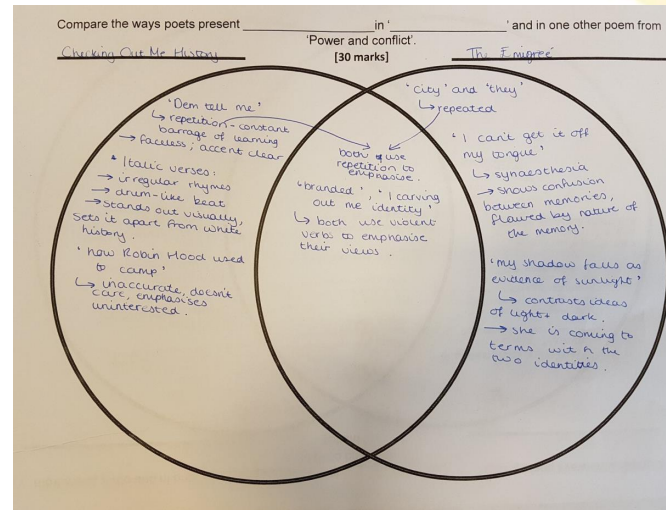 Compare the ways poets present _______________ in '_______________' and in one other poem from
'Power and conflict'.
[30 marks]
Checking Out Me History
The Emigreé
'Dem tell me'
↳ repetition - constant
barrage of learning
→ faceless; accent clear
* Italic verses:
→ irregular rhymes
→ drum-like beat
→ stands out visually,
sets it apart from white
history.
'how Robin Hood used
to camp'
↳ inaccurate, doesn't
care, emphasises
uninterested.
both use
repetition to
emphasise.
'branded', 'I carving
out me identity'
↳ both use violent
verbs to emphasise
their views.
'city' and 'they'
↳ repeated
'I can't get it off
my tongue'
↳ synaesthesia
→ shows confusion
between memories,
flawed by nature of
the memory.
'my shadow falls as
evidence of sunlight'
↳ contrasts ideas
of light + dark.
→ she is coming to
terms with the
two identities.